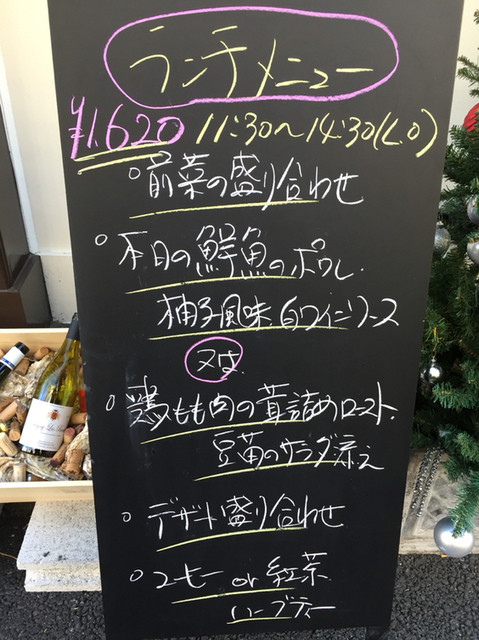 ランチメニュー
¥1.620 11:30〜14:30(L.O)
○前菜の盛り合わせ
○本日の鮮魚のポワレ
柚子風味白ワインソース
又は
○鶏もも肉の茸詰めロースト
豆苗のサラダ添え
○デザート盛り合わせ
○コーヒー or 紅茶
ハーブティー